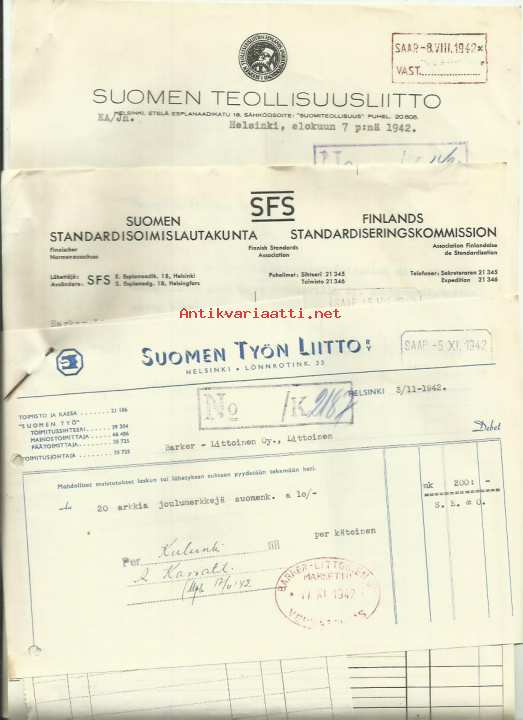 SAAR -8.VIII.1942
VAST.
SUOMEN TEOLLISUUSLIITTO
HELSINKI, ETELÄ ESPLANAADIKATU 18, SÄHKÖOSOITE: "SUOMITEOLLISUUS" PUHEL. 20 808.
HA/JH.
Helsinki, elokuun 7 p:nä 1942.
No
SFS
SUOMEN
STANDARDISOIMISLAUTAKUNTA
FINLANDS
STANDARDISERINGSKOMMISSION
Finnischer
Normenausschuss
Finnish Standards
Association
Association Finlandaise
de Standardisation
Lähettäjä:
Avsändare:
SFS
E. Esplanaadik. 18, Helsinki
S. Esplanadg. 18, Helsingfors
Puhelimet: Sihteeri 21 345
Toimisto 21 346
Telefoner: Sekreteraren 21 345
Expedition 21 346
Antikvariaatti.net
SUOMEN TYÖN LIITTO RY
HELSINKI • LÖNNROTINK. 25
SAAP -5. XI. 1942
No /K 2187
HELSINKI 3/11-1942.
TOIMISTO JA KASSA 21 186
"SUOMEN TYÖ"
TOIMITUSSIHTEERI 29 304
MAINOSTOIMITTAJA 66 406
PÄÄTOIMITTAJA 35 725
TOIMITUSJOHTAJA 35 725
Barker - Littoinen Oy., Littoinen
Debet
Mahdolliset muistutukset laskun tai lähetyksen suhteen pyydetään tekemään heti.
20 arkkia joulumerkkejä suomenk. a 10/-
mk 200: -
S. E. & O.
per käteinen
Per
BARKER-LITTOINEN
MAKSETTU
11 XI. 1942